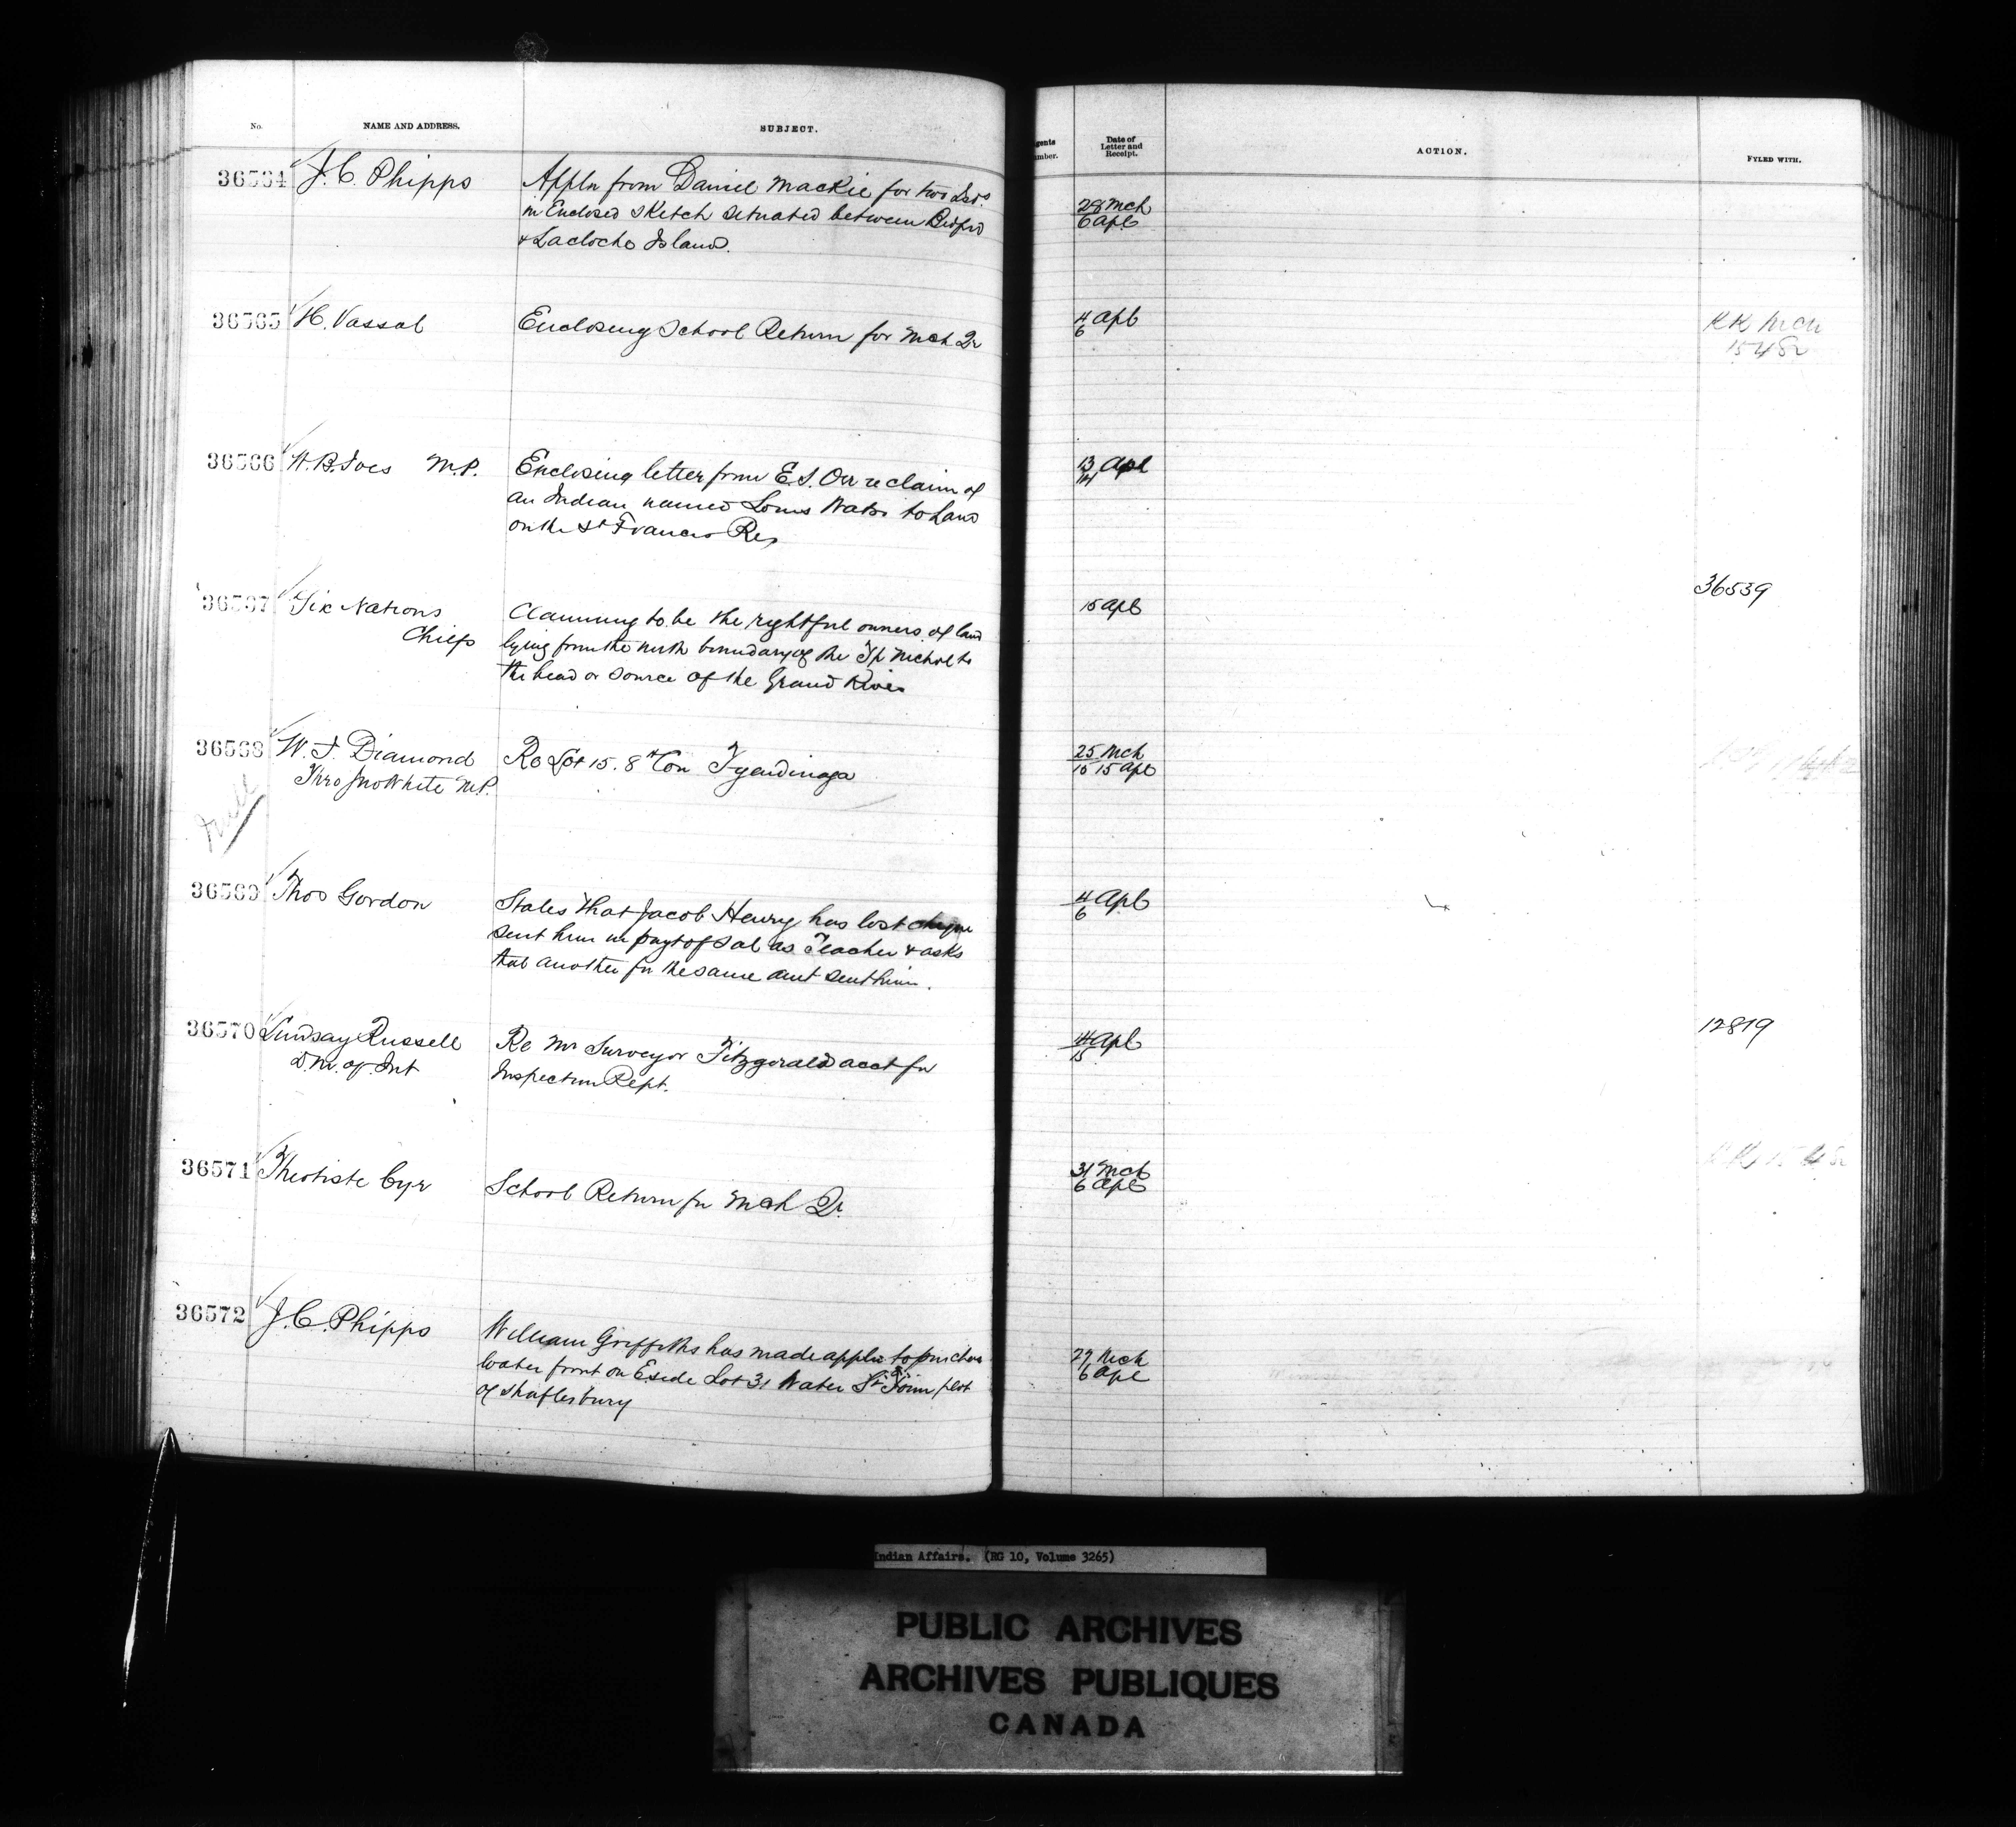 No. NAME AND ADDRESS. SUBJECT. gents umber. Date of Letter and Receipt. ACTION. FYLED WITH.
36564 J. C. Phipps Appln from Daniel Mackie for two Isds
in Enclosed sketch situated between
& Lacloche Island.
28 Mch
6 Apl
36565 H. Vassal Enclosing School Return for Mch Qr
4 Apl
6
KK Mch
15482
36566 W. B. Ives M.P. Enclosing letter from E. S. Orr re claim of
an Indian named Louis Watso to Land
on the St Francis Res
13 Apl
14
36567 Six Nations
Chiefs
Claiming to be the rightful owners of land
lying from the north boundary of the Tp Nichol to
the head or source of the Grand River
15 Apl
36539
36568 W. F. Diamond
Thro Jno White M.P.
Re Lot 15. 8th Con Tyendinaga
25 Mch
15 15 Apl
36569 Thos Gordon States that Jacob Henry has lost cheque
sent him in payt of sal as Teacher & asks
that another for the same amt sent him.
4 Apl
6
36570 Lindsay Russell
D.M. of Int
Re Mr Surveyor Fitzgerald acct for
Inspection Rept.
14 Apl
15
12819
36571 Theotiste Cyr School Return for Mch Qr.
31 Mch
6 Apl
36572 J. C. Phipps William Griffiths has made appln to purchase
water front on E side Lot 31 Water St Town plot
of Shaftesbury
29 Mch
6 Apl
Indian Affairs. (RG 10, Volume 3265)
PUBLIC ARCHIVES
ARCHIVES PUBLIQUES
CANADA